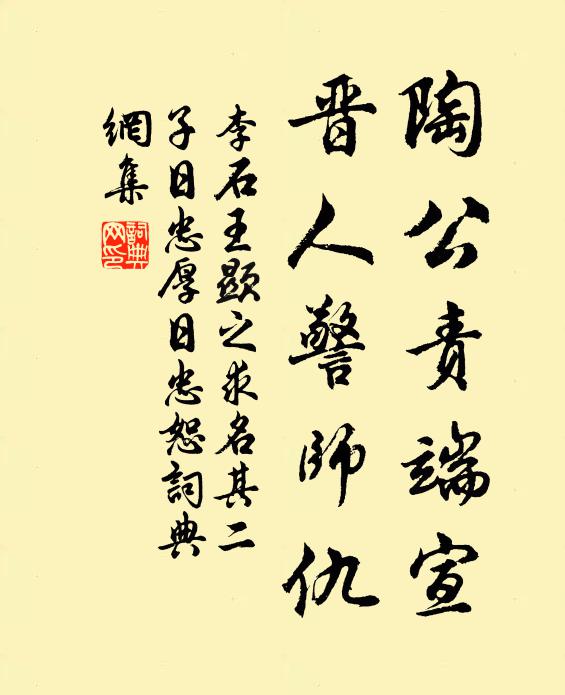 陶公责端宣
晋人警師仇
李石王顯之求名其二
子日忠厚日忠恕詞典
網集
詞典
网印